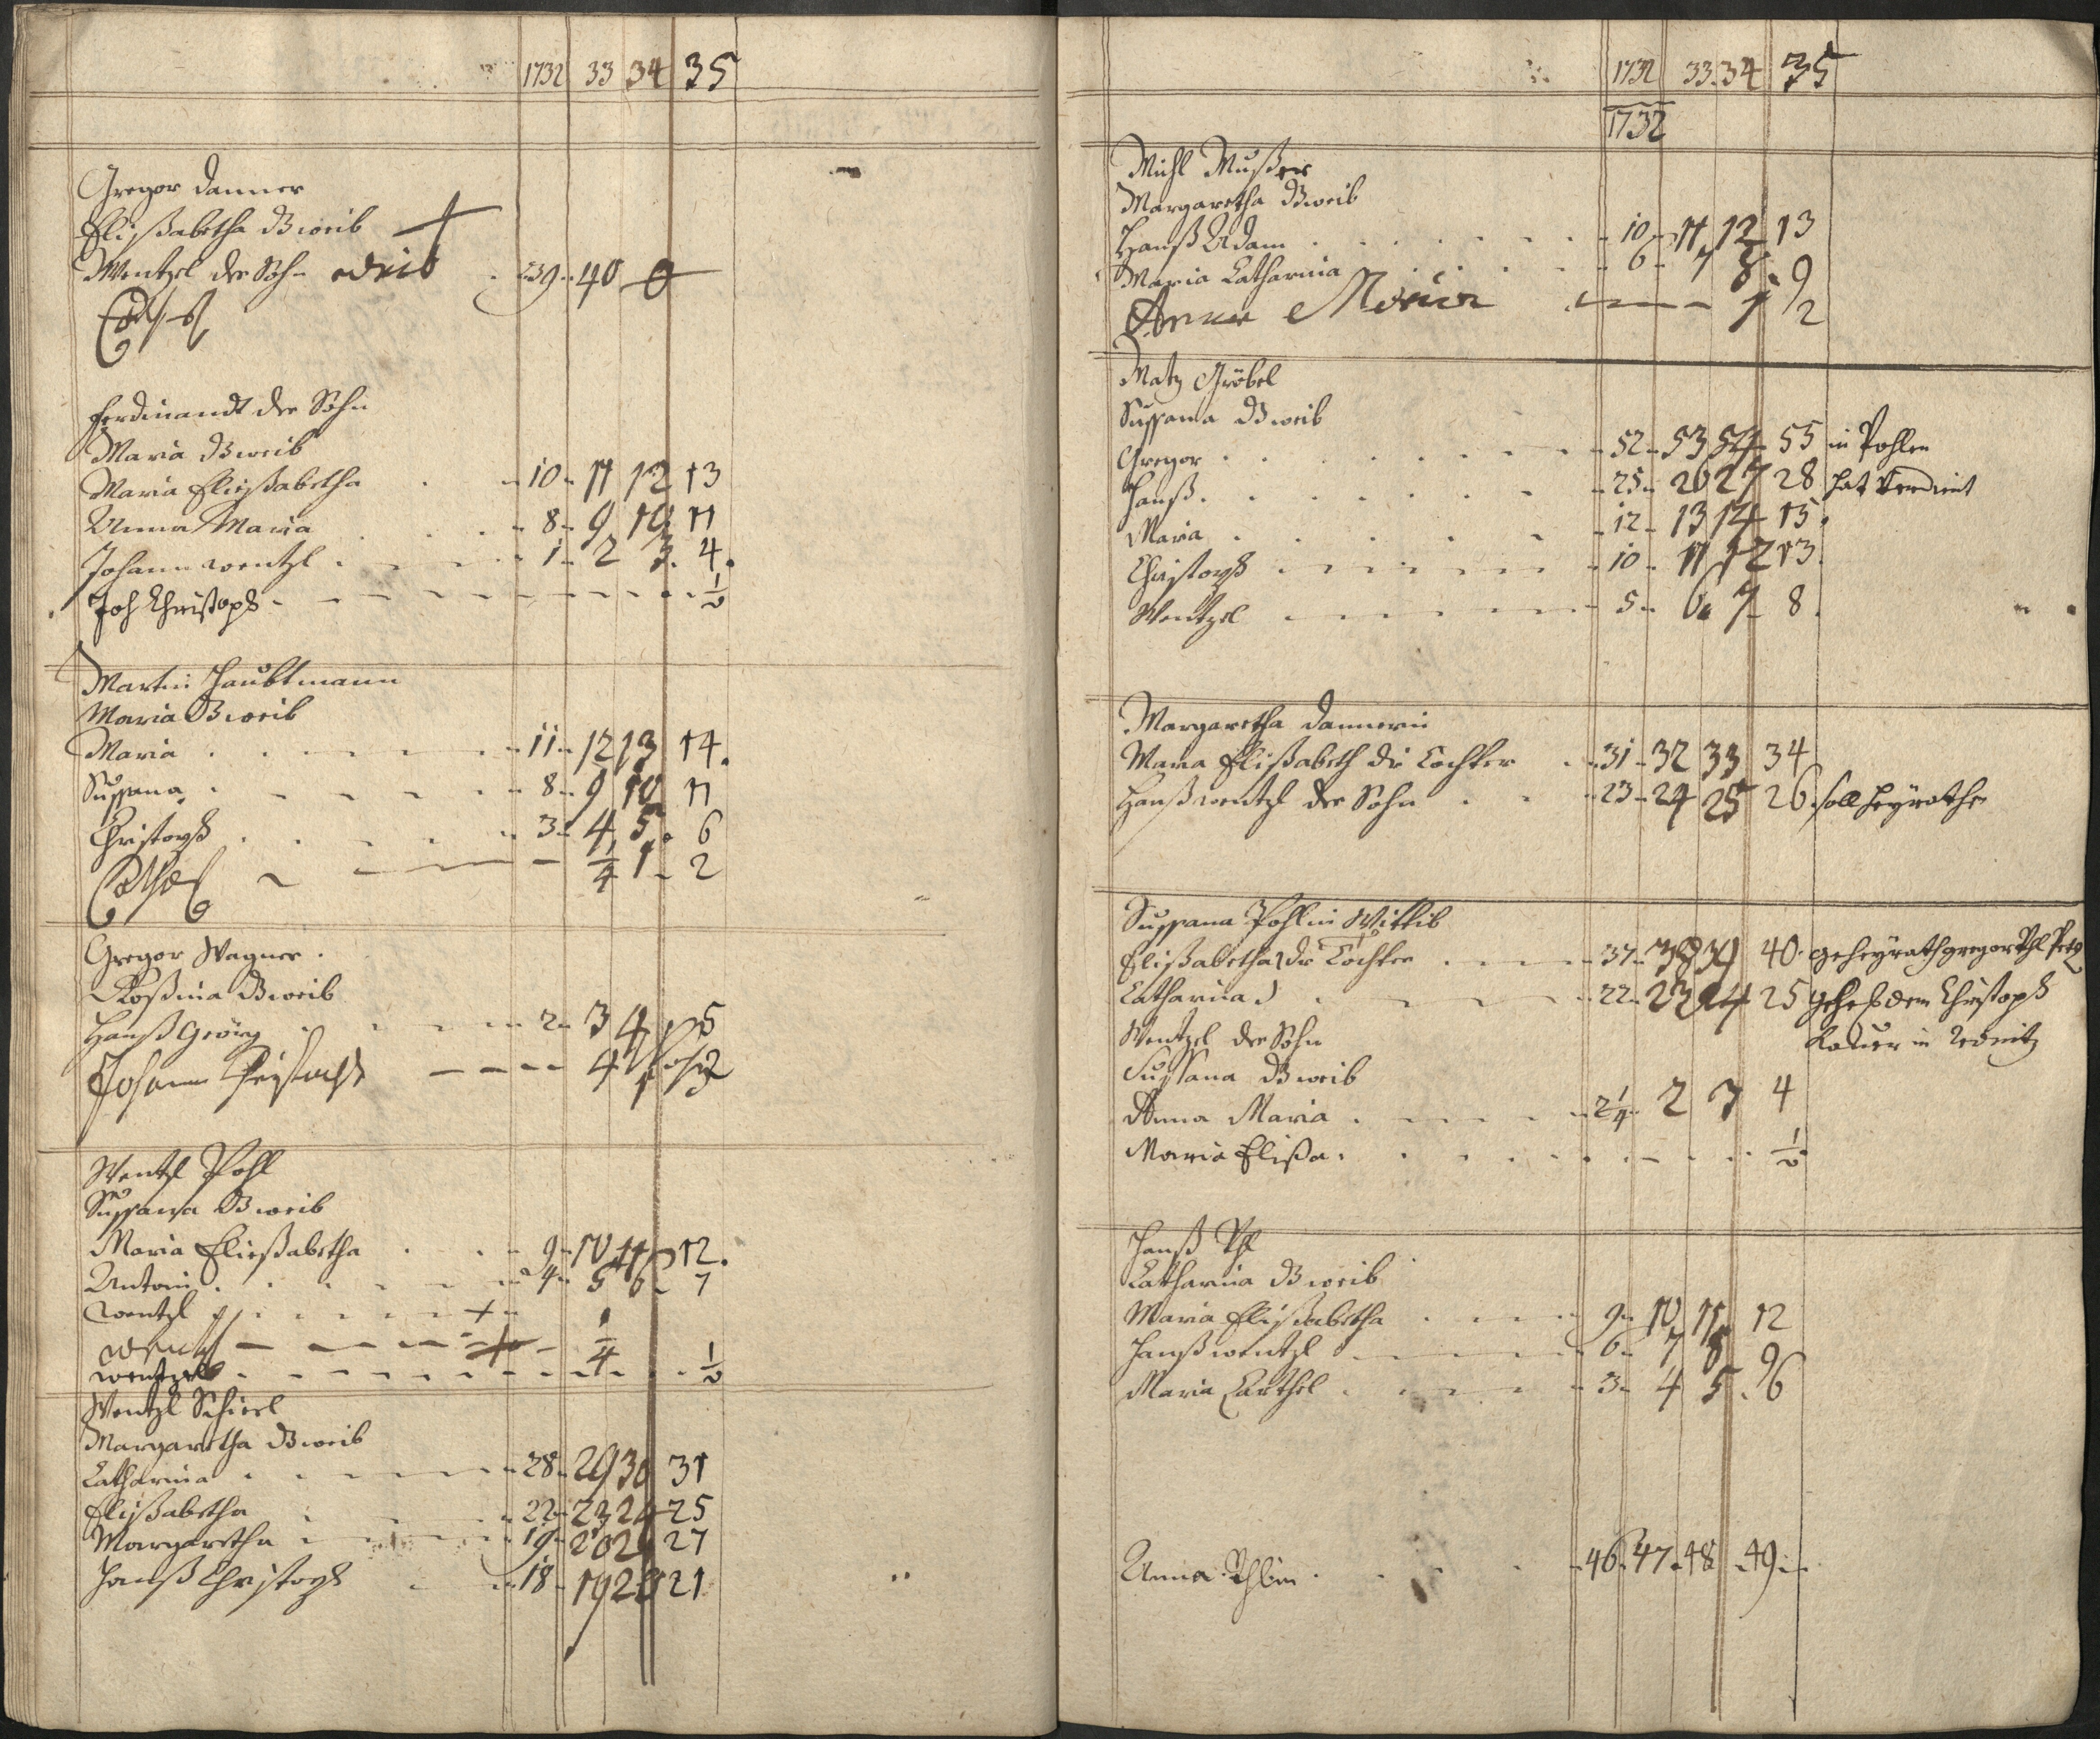 1732 33 34 35
Gregor Danner
Elißabetha B weib
Wentzel der Sohn 39 40 0
Ferdinandt der Sohn
Maria B weib
Maria Eließabetha 10 11 12 13
Anna Maria 8 9 10 11
Johann wentzl 1 2 3 4
Joh Christoph ½
Martin Haubtmann
Maria B weib
Maria 11 12 13 14
Sussana 8 9 10 11
Christoph 3 4 5 6
¼ 1 2
Gregor Wagner
Roßina B weib
Hanß Georg 2 3 4 5
Johann Christoph
Wentzl Pohl
Sussana B weib
Maria Eließabetha 9 10 11 12
Antoni 4 5 6 7
wentzl
wentzl ¼
wentzel ½
Wentzl Schierl
Margaretha B weib
Catharina 28 29 30 31
Elißabetha 22 23 24 25
Margaretha 19 20 21 27
Hanß Christoph 18 19 20 21
1732 33 34 35
1732
Michl Mußer
Margaretha B weib
Hanß Adam 10 11 12 13
Maria Catharina 6 7 8 9
Anna Maria 1 2
Matz Gröbel
Sussana B weib
Gregor 52 53 54 55 in Pohlen
Hanß 25 26 27 28 hat verdient
Maria 12 13 14 15
Christoph 10 11 12 13
Wentzel 5 6 7 8
Margaretha Dannerin
Maria Elißabeth die Tochter 31 32 33 34
Hanß wentzl der Sohn 23 24 25 26 soll heyrathe
Sussana Pohlin Wittib
Elißabetha die Tochter 37 38 39 40 geheyrath gregor
Catharina 22 23 24 25 dem Christoph
in
Wentzel der Sohn
Sussana B weib
Anna Maria 2¼ 2 3 4
Maria Elißa ½
Hanß
Catharina B weib
Maria Elißabetha 9 10 11 12
Hanß wentzl 6 7 8 9
Maria 3 4 5 6
Anna 46 47 48 49